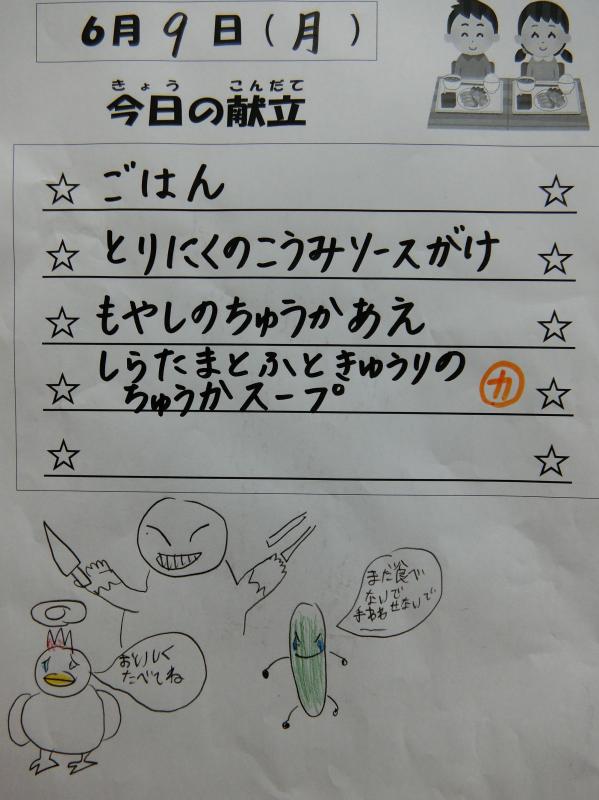 6月 9 日(月)
きょう こんだて
今日の献立
☆ ごはん ☆
☆ とりにくのこうみソースがけ ☆
☆ もやしのちゅうかあえ ☆
☆ しらたまとふときゅうりの
ちゅうかスープ カ ☆
☆ ☆
まだ食べ
ないで
手あわせないで
おいしく
たべてね